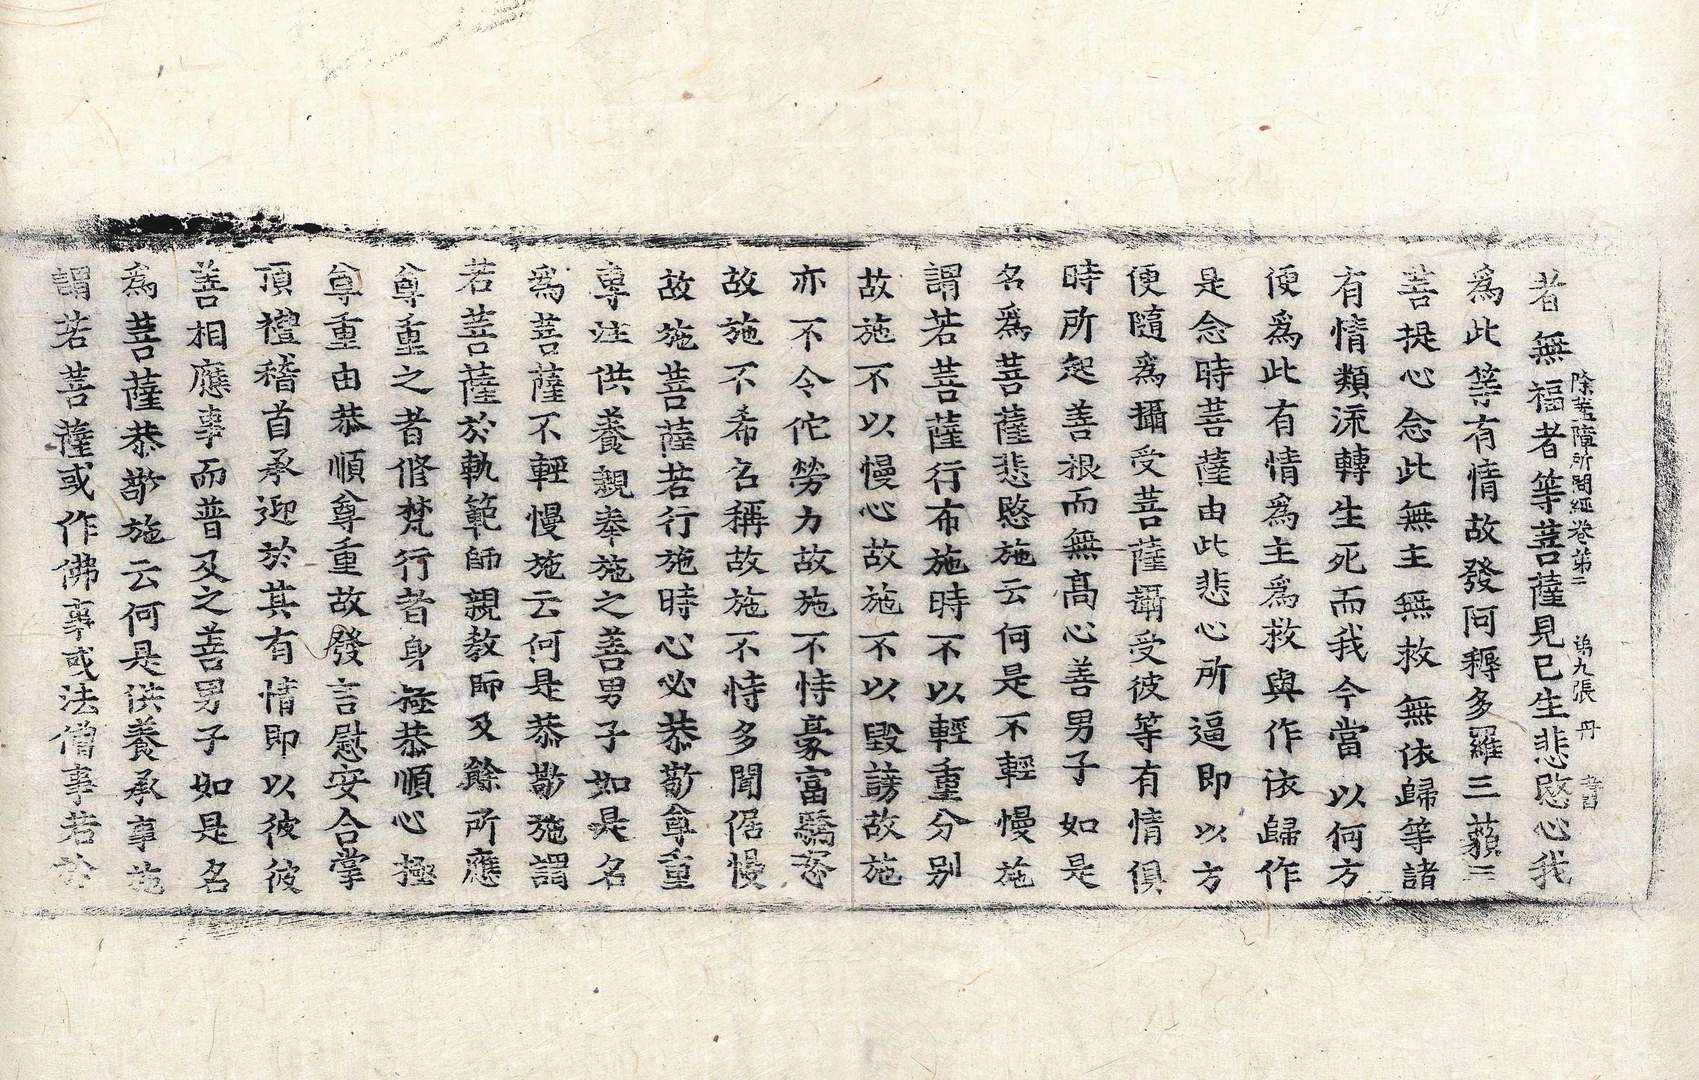 除蓋障所問經卷第二　第九張　丹　書
者無福者等菩薩見已生悲愍心我
爲此等有情故發阿耨多羅三藐三
菩提心念此無主無救無依歸等諸
有情類流轉生死而我今當以何方
便爲此有情爲主爲救與作依歸作
是念時菩薩由此悲心所逼即以方
便隨爲攝受菩薩攝受彼等有情俱
時所起善根而無高心善男子如是
名爲菩薩悲愍施云何是不輕慢施
謂若菩薩行布施時不以輕重分别
故施不以慢心故施不以毀謗故施
亦不令佗勞力故施不恃豪富驕恣
故施不希名稱故施不恃多聞倨慢
故施菩薩若行施時心必恭敬尊重
專注供養親奉施之善男子如是名
爲菩薩不輕慢施云何是恭敬施謂
若菩薩於軌範師親教師及餘所應
尊重之者修梵行者身極恭順心極
尊重由恭順尊重故發言慰安合掌
頂禮稽首承迎於其有情即以彼彼
善相應事而普及之善男子如是名
爲菩薩恭敬施云何是供養承事施
謂若菩薩或作佛事或法僧事若於